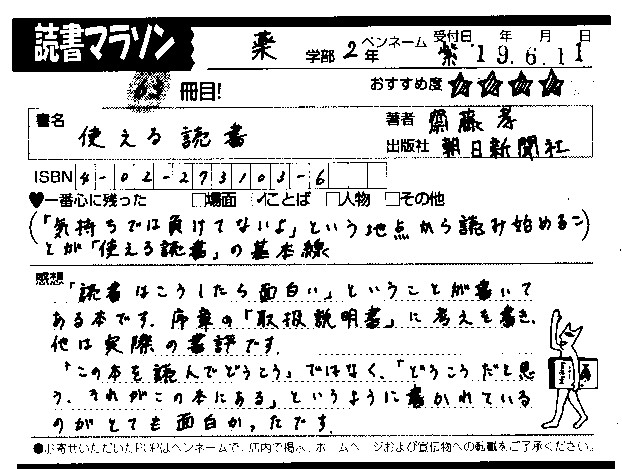 読書マラソン
薬 学部 2年 ペンネーム 紫 受付日 年 月 日 '19.6.11
63 冊目!
おすすめ度 ☆☆☆☆
書名 使える読書
著者 齋藤孝
出版社 朝日新聞社
ISBN 4-02-273103-6
♥一番心に残った □場面 ☑ことば □人物 □その他
(「気持ちでは負けてないよ」という地点から読み始めるこ
とが「使える読書」の基本線)
感想
「読書はこうしたら面白い」ということが書いて
ある本です。序章の「取扱説明書」に考えを書き、
他は実際の書評です。
「この本を読んでどうこう」ではなく、「どうこうだと思
う、それがこの本にある」というように書かれている
のがとても面白かったです。
●お寄せいただいたPOPはペンネームで、店内で掲示、ホームページおよび宣伝物への転載をご了承ください。